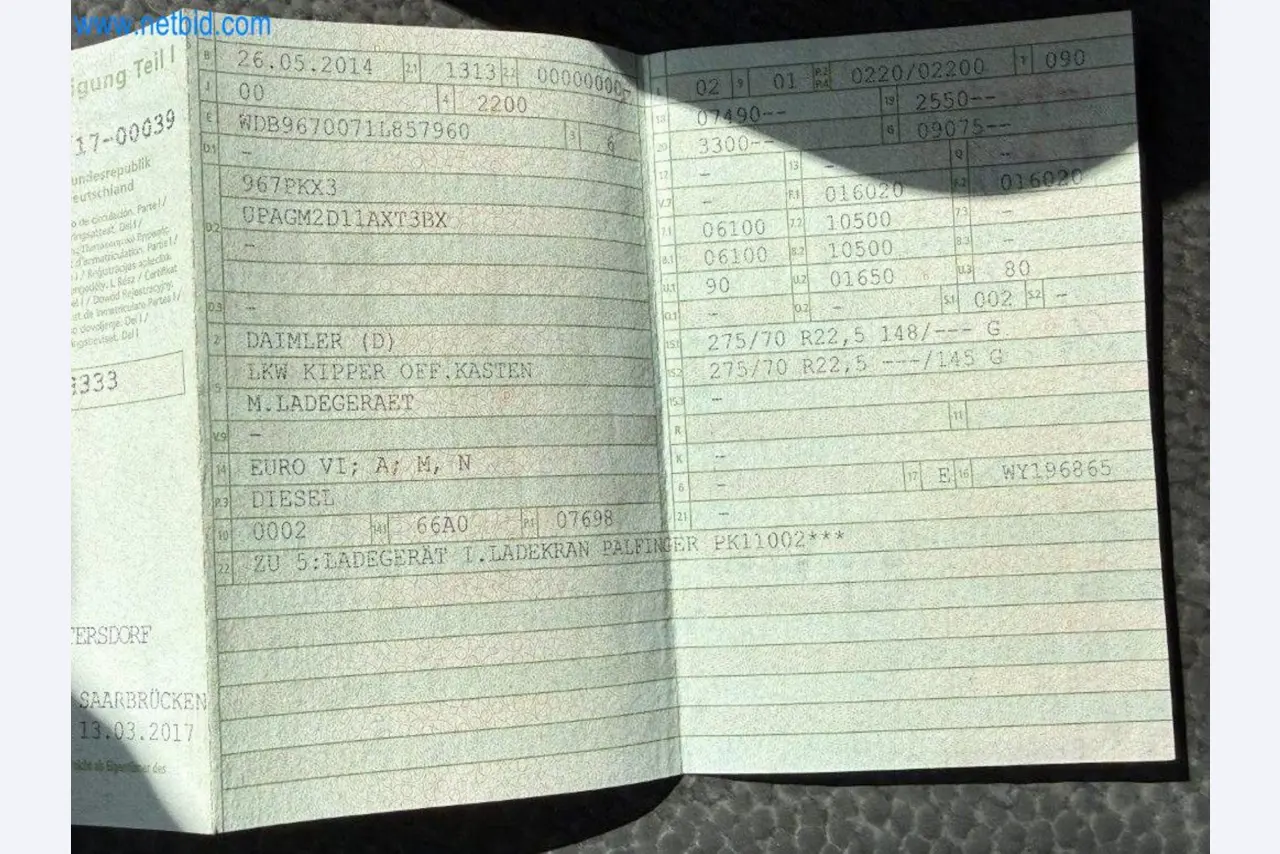 www.netbid.com
igung Teil I
17-00039
undesrepublik
eutschland
o de circulación. Parte I /
333
TERSDORF
SAARBRÜCKEN
13.03.2017
nicht als Eigentümer des
B 26.05.2014 2.1 1313 2.2 00000000-
J 00 4 2200
E WDB9670071L857960 3 6
D.1 -
967PKX3
D.2 UPAGM2D11AXT3BX
-
D.3 -
2 DAIMLER (D)
5 LKW KIPPER OFF.KASTEN
M.LADEGERAET
V.9 -
14 EURO VI; A; M, N
P.3 DIESEL
10 0002 14.1 66A0 P.1 07698
22 ZU 5:LADEGERÄT I.LADEKRAN PALFINGER PK11002***
L 02 9 01 P.2 P.4 0220/02200 T 090
18 07490-- 19 2550--
20 3300-- G 09075--
12 - 13 - Q -
V.7 - F.1 016020 F.2 016020
7.1 06100 7.2 10500 7.3 -
8.1 06100 8.2 10500 8.3 -
U.1 90 U.2 01650 U.3 80
O.1 - O.2 - S.1 002 S.2 -
15.1 275/70 R22,5 148/--- G
15.2 275/70 R22,5 ---/145 G
15.3 -
R 11
K -
6 - 17 E 16 WY196865
21 -